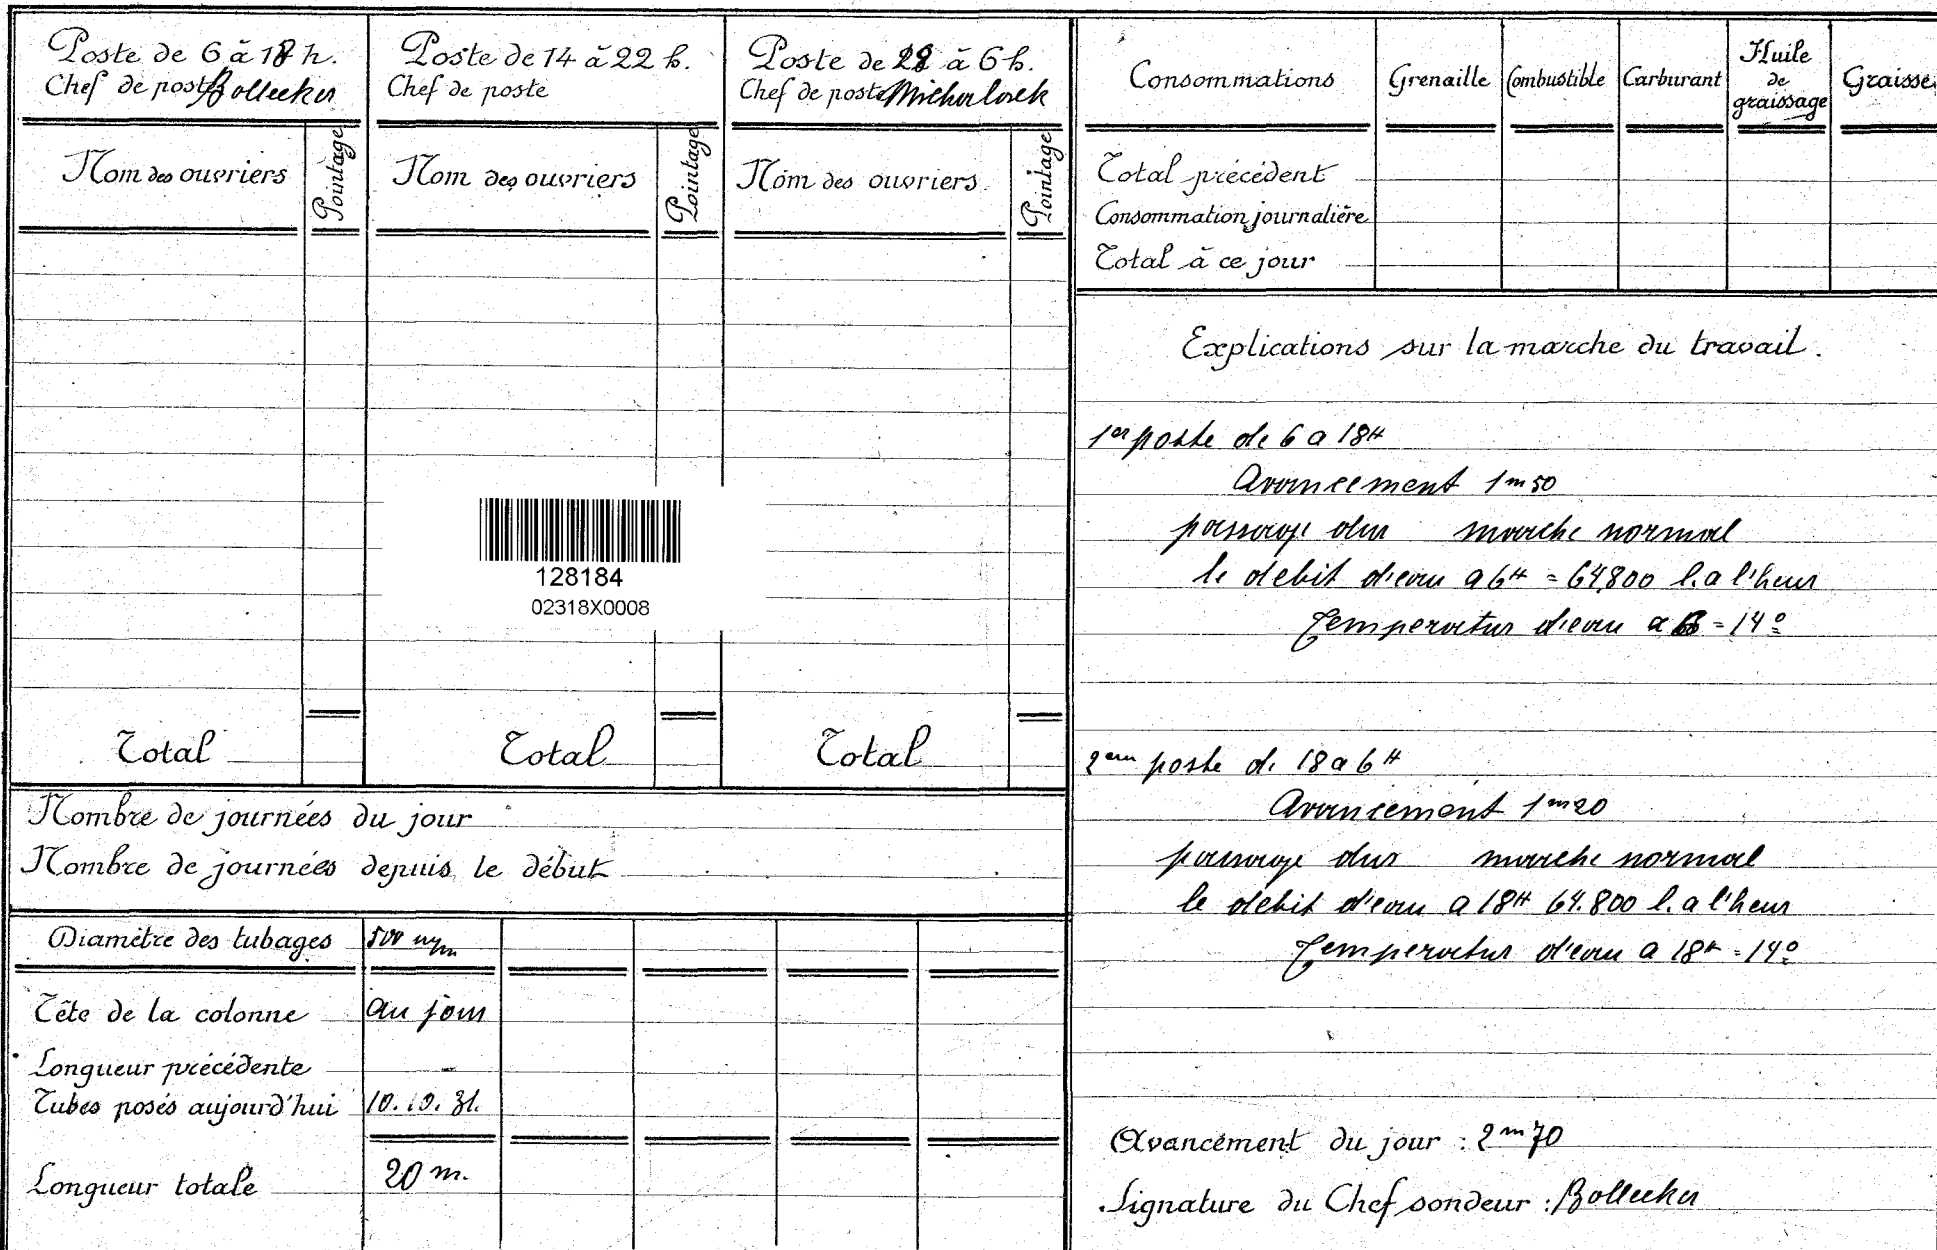 Poste de 6 à 18 h.
Chef de poste Bollecker
Nom des ouvriers
Pointage
Total
Poste de 14 à 22 h.
Chef de poste
Nom des ouvriers
Pointage
Total
Poste de 28 à 6 h.
Chef de poste
Nom des ouvriers
Pointage
Total
128184
02318X0008
Nombre de journées du jour
Nombre de journées depuis le début
Diamètre des tubages 500 m/m
Tête de la colonne au jour
Longueur précédente
Tubes posés aujourd'hui 10.10.31.
Longueur totale 20 m.
Consommations Grenaille Combustible Carburant Huile de graissage Graisse
Total précédent
Consommation journalière
Total à ce jour
Explications sur la marche du travail.
1er poste de 6 a 18H
Avancement 1m50
passage dur marche normal
le debit d'eau a 6H = 64,800 l. a l'heur
Temperatur d'eau a 6 = 14°
2em poste de 18 a 6H
Avancement 1m20
passage dur marche normal
le debit d'eau a 18H 64.800 l. a l'heur
Temperatur d'eau a 18H = 14°
Avancement du jour : 2m70
Signature du Chef sondeur : Bollecker